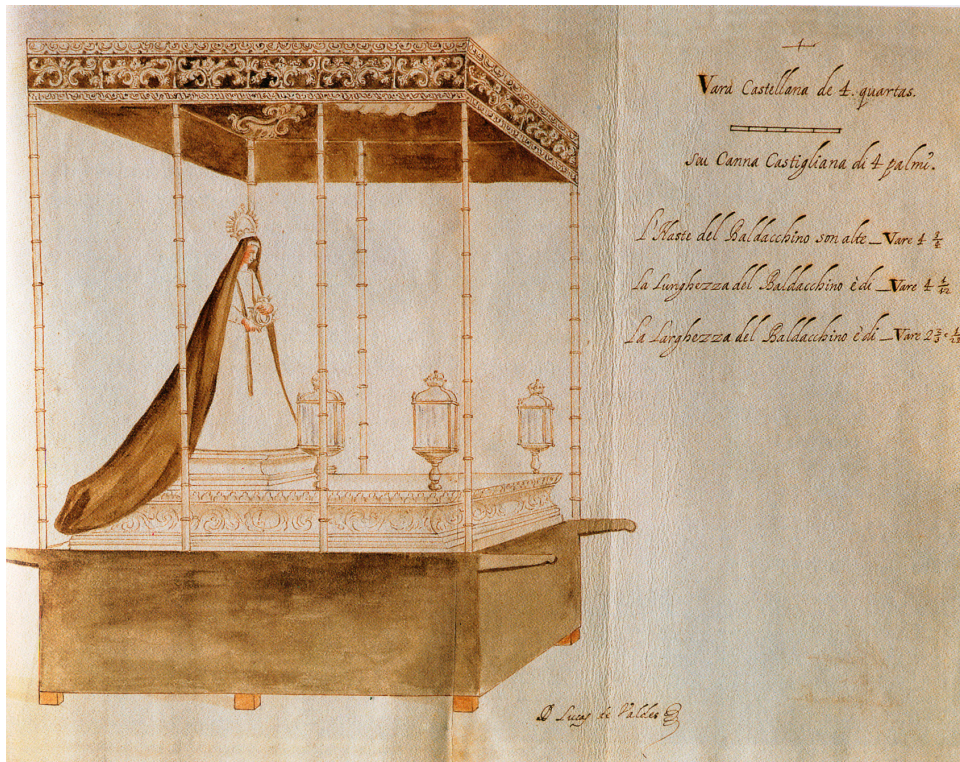 Vara Castellana de 4 quartas.
seu Canna Castigliana di 4 palmi.
L'Haste del Baldacchino son alte _ Vare 4
La Lunghezza del Baldacchino è di _ Vare 4
La Larghezza del Baldacchino è di _ Vare 2
D Lucas de Valdes